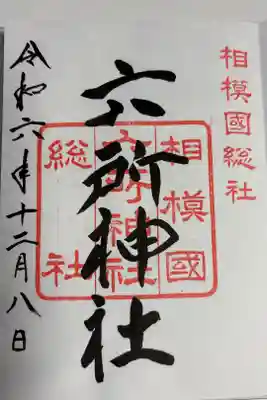 相模國総社
六所神社
相模國
六所神社
総社
令和六年十二月八日